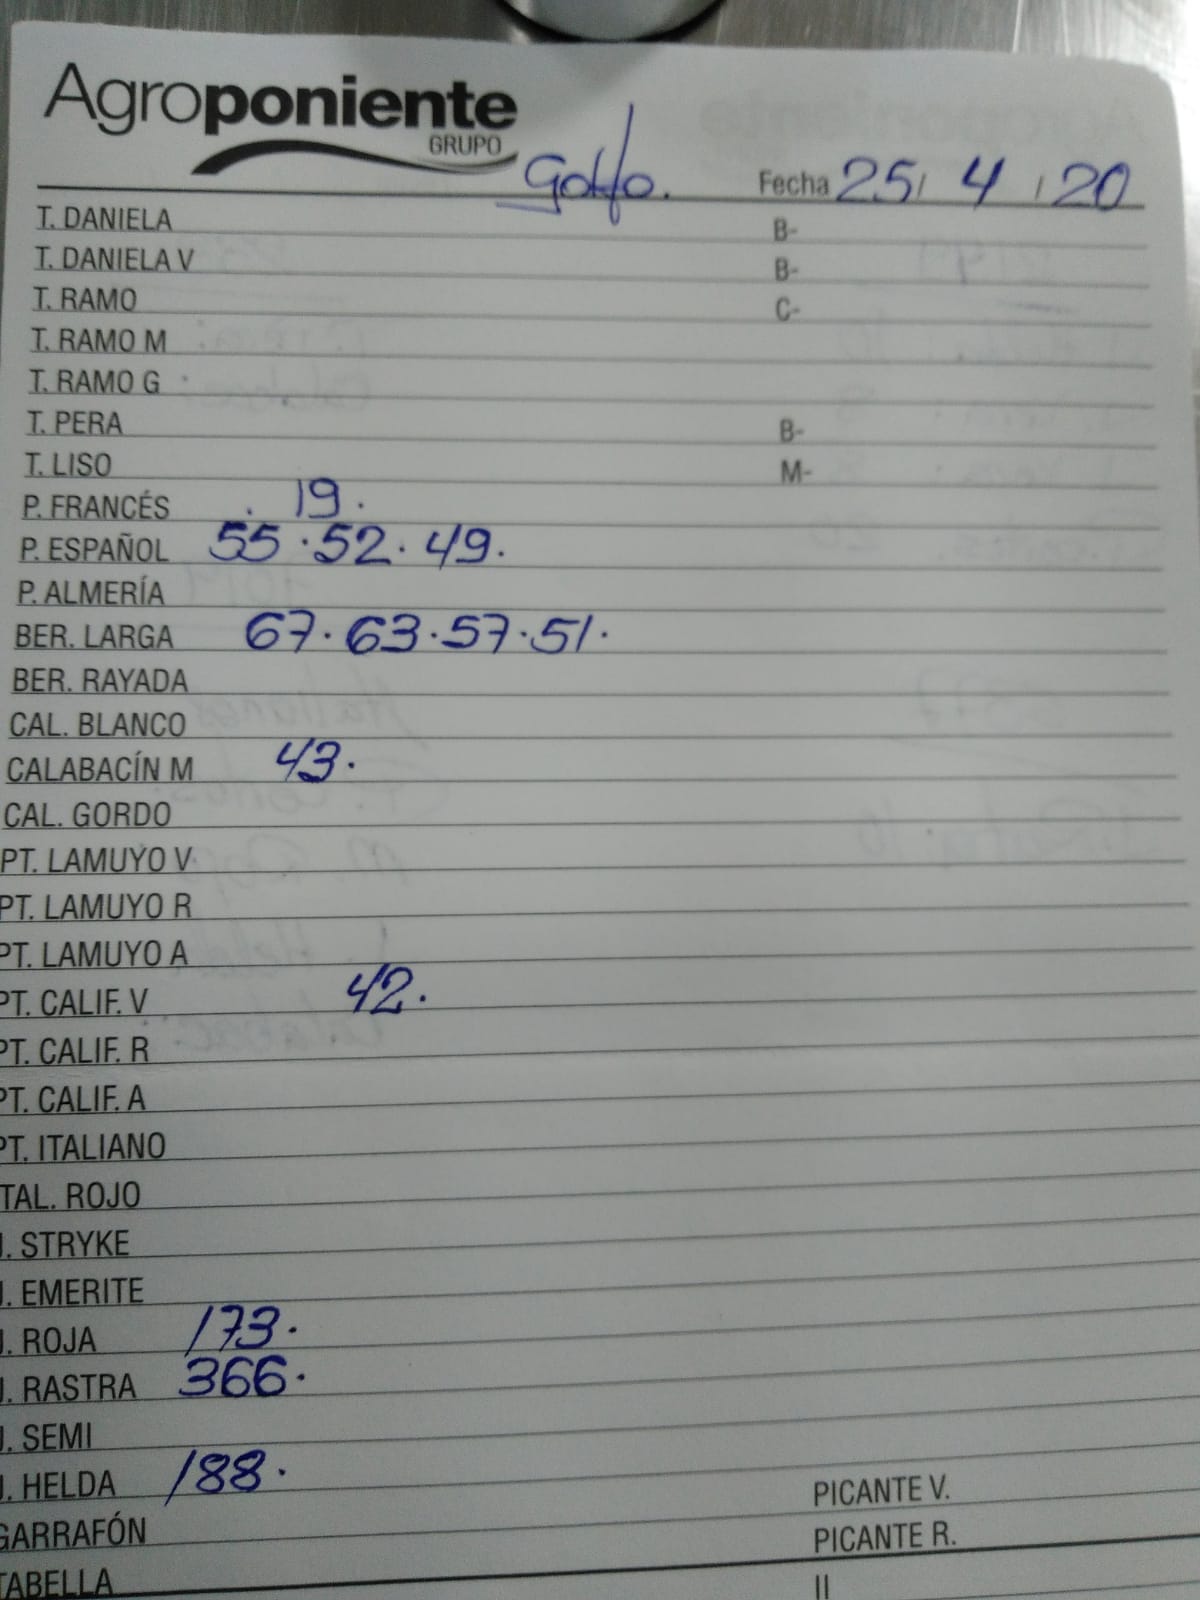 Agroponiente
GRUPO
Golfo. Fecha 25/ 4 / 20
T. DANIELA B-
T. DANIELA V B-
T. RAMO C-
T. RAMO M
T. RAMO G
T. PERA B-
T. LISO M-
P. FRANCÉS . 19.
P. ESPAÑOL 55 · 52 · 49.
P. ALMERÍA
BER. LARGA 67 · 63 · 57 · 51 ·
BER. RAYADA
CAL. BLANCO
CALABACÍN M 43 ·
CAL. GORDO
PT. LAMUYO V
PT. LAMUYO R
PT. LAMUYO A
PT. CALIF. V 42 ·
PT. CALIF. R
PT. CALIF. A
PT. ITALIANO
TAL. ROJO
J. STRYKE
J. EMERITE
J. ROJA 173 ·
J. RASTRA 366 ·
J. SEMI
J. HELDA 188 · PICANTE V.
GARRAFÓN PICANTE R.
TABELLA II